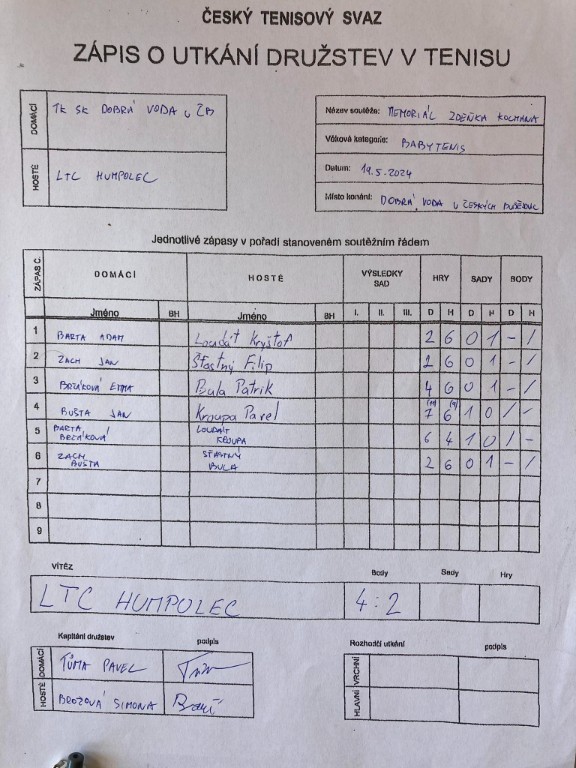 ČESKÝ TENISOVÝ SVAZ
ZÁPIS O UTKÁNÍ DRUŽSTEV V TENISU
DOMÁCÍ TK SK DOBRÁ VODA u ČB
HOSTÉ LTC HUMPOLEC
Název soutěže: MEMORIÁL ZDEŇKA KOLMANA
Věková kategorie: BABYTENIS
Datum: 19.5.2024
Místo konání: DOBRÁ VODA U ČESKÝCH BUDĚJOVIC
Jednotlivé zápasy v pořadí stanoveném soutěžním řádem
ZÁPAS Č. DOMÁCÍ HOSTÉ VÝSLEDKY SAD HRY SADY BODY
Jméno BH Jméno BH I. II. III. D H D H D H
1 BARTA ADAM Loudát Kryštof 2 6 0 1 - /
2 ZACH JAN Šťastný Filip 2 6 0 1 - /
3 BRZÁKOVÁ EMMA Bula Patrik 4 6 0 1 - /
4 BUŠTA JAN Kroupa Pavel 7 6 1 0 / -
5 BARTA, BRZÁKOVÁ LOUDÁT KROUPA 6 4 1 0 / -
6 ZACH BUŠTA ŠŤASTNÝ BULA 2 6 0 1 - /
7
8
9
VÍTĚZ Body Sady Hry
LTC HUMPOLEC 4:2
Kapitáni družstev podpis Rozhodčí utkání podpis
DOMÁCÍ TŮMA PAVEL
HOSTÉ BROŽOVÁ SIMONA
VRCHNÍ
HLAVNÍ